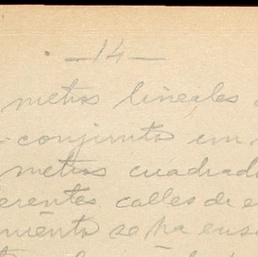 —14—
metros lineales
conjunto un
metros cuadrad
erentes calles de e
miento se ha ens